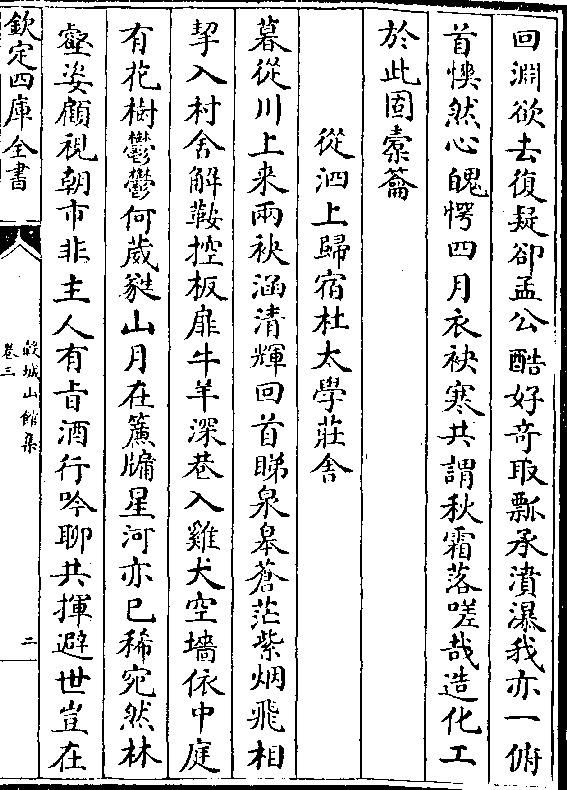 回淵欲去復疑卻孟公酷好竒取瓢承濆瀑我亦一俯
首慔然心魄愕四月衣袂寒共謂秋霜落嗟哉造化工
於此固橐籥
從泗上歸宿杜太學莊舍
暮從川上来兩袂涵清輝回首睇泉皋蒼茫紫烟飛相
挈入村舍解鞍控板扉牛羊深巷入雞犬空墻依中庭
有花樹鬱鬱何葳蕤山月在簾牖星河亦已稀宛然林
壑姿顧視朝市非主人有㫖酒行吟聊共揮避世豈在
欽定四庫全書
榖城山館集
卷三
二